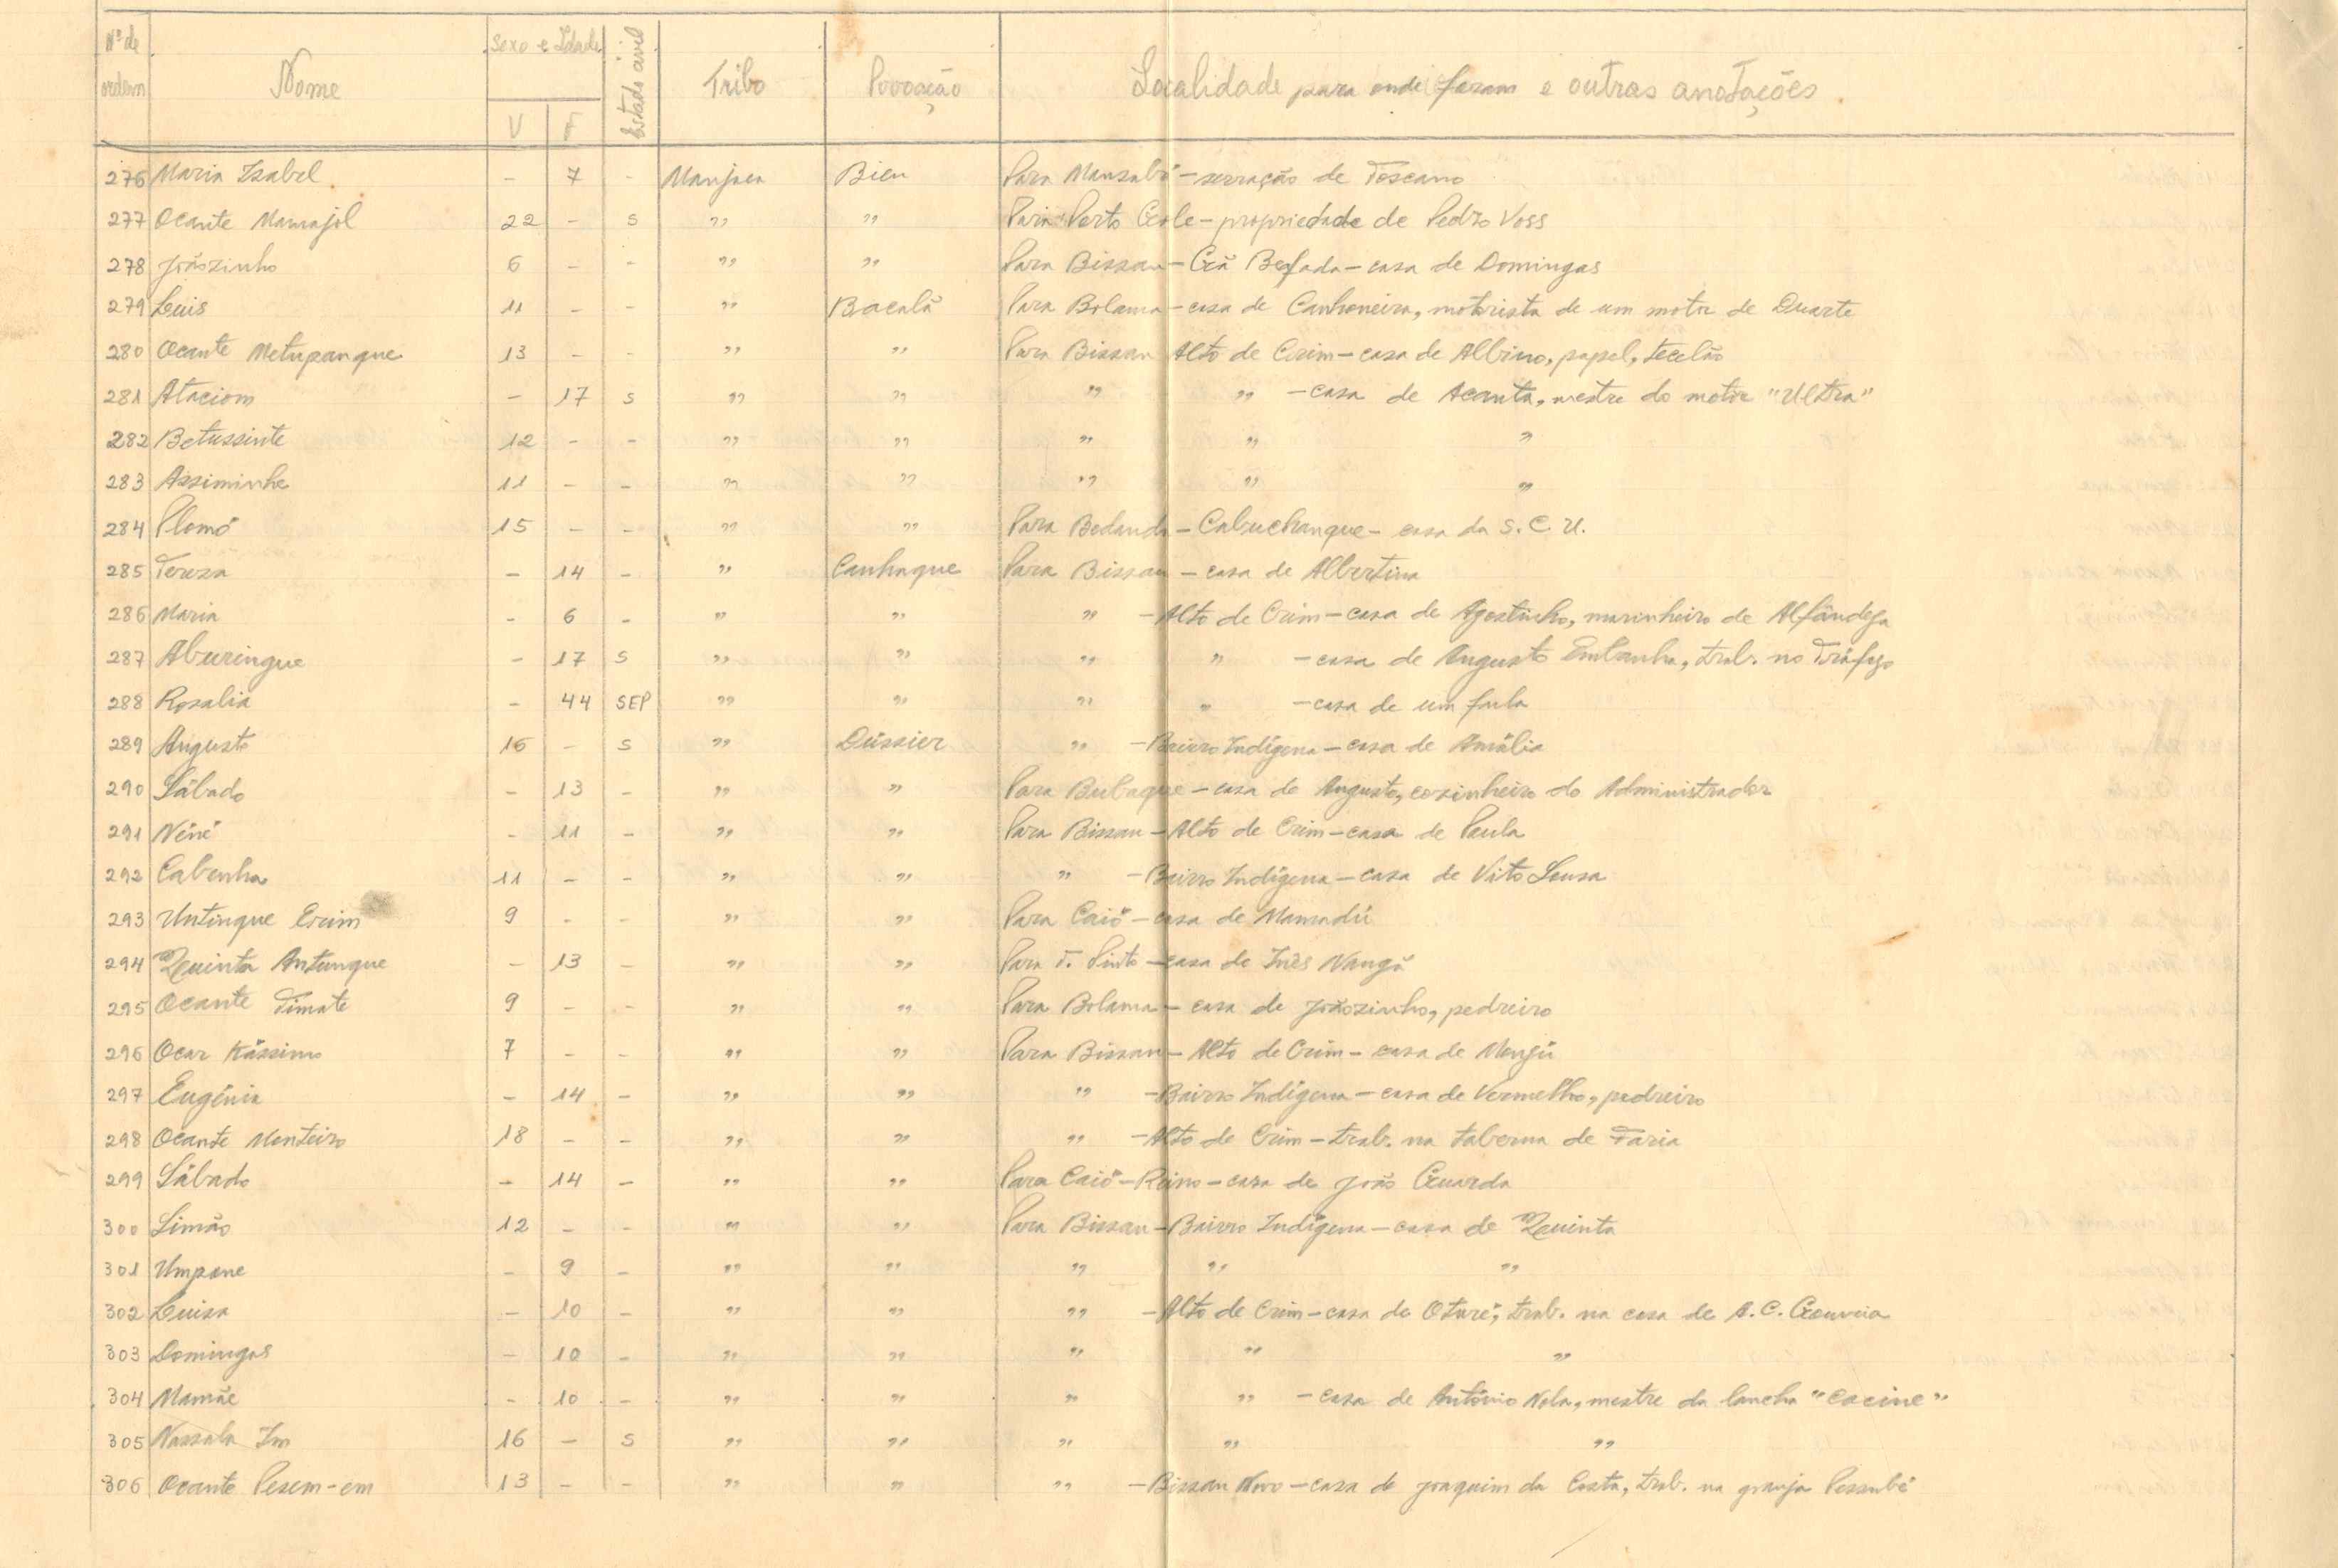 Nº de ordem Nome Sexo e Idade V F Estado civil Tribo Povoação Localidade para onde foram e outras anotações
276 Maria Isabel - 7 - Manjaca Bieu Para Mansabá - serração de Toscano
277 Ocante Mamajol 22 - S " " Para Porto Gole - propriedade de Pedro Voss
278 Joãozinho 6 - - " " Para Bissau - Gã Beafada - casa de Domingas
279 Luis 11 - - " Bacalã Para Bolama - casa de Canhoneira, motorista de um motor de Duarte
280 Ocante Metupanque 13 - - " " Para Bissau Alto de Crim - casa de Albino, papel, tecelão
281 Ataciom - 17 S " " " " - casa de Acanta, mestre do motor "Ultra"
282 Betussinte 12 - - " " " " "
283 Assiminhe 11 - - " " " " "
284 Plomó 15 - - " " Para Bedanda - Cabuchanque - casa da S. C. U.
285 Teresa - 14 - " Canhaque Para Bissau - casa de Albertina
286 Maria - 6 - " " " - Alto de Crim - casa de Agostinho, marinheiro de Alfândega
287 Aburingue - 17 S " " " " - casa de Augusto Embanha, trab. no Tráfego
288 Rosalia - 44 SEP " " " " - casa de um fula
289 Augusto 16 - S " Dússier " - Bairro Indígena - casa de Amália
290 Sábado - 13 - " " Para Bubaque - casa de Augusto, cozinheiro do Administrador
291 Néné - 11 - " " Para Bissau - Alto de Crim - casa de Paula
292 Cabenha 11 - - " " " - Bairro Indígena - casa de Vito Sousa
293 Untinque Crim 9 - - " " Para Caió - casa de Mamadú
294 Quinta Antunque - 13 - " " Para T. Pinto - casa de Inês Nangã
295 Ocante Timate 9 - - " " Para Bolama - casa de Joãozinho, pedreiro
296 Ocar Kássimo 7 - - " " Para Bissau - Alto de Crim - casa de Mengú
297 Eugénia - 14 - " " " - Bairro Indígena - casa de Vermelho, pedreiro
298 Ocante Monteiro 18 - - " " " - Alto de Crim - trab. na taberna de Faria
299 Sábado - 14 - " " Para Caió - Reino - casa de João Guarda
300 Simão 12 - - " " Para Bissau - Bairro Indígena - casa de Quinta
301 Umpane - 9 - " " " " "
302 Luisa - 10 - " " " - Alto de Crim - casa de Oturé, trab. na casa de A. C. Gouveia
303 Domingas - 10 - " " " " "
304 Mamãe - 10 - " " " " - casa de António Nola, mestre da lancha "Cacine"
305 Nassala Im 16 - S " " " " "
306 Ocante Pesem-em 13 - - " " " - Bissau Novo - casa de Joaquim da Costa, trab. na granja Pessubé